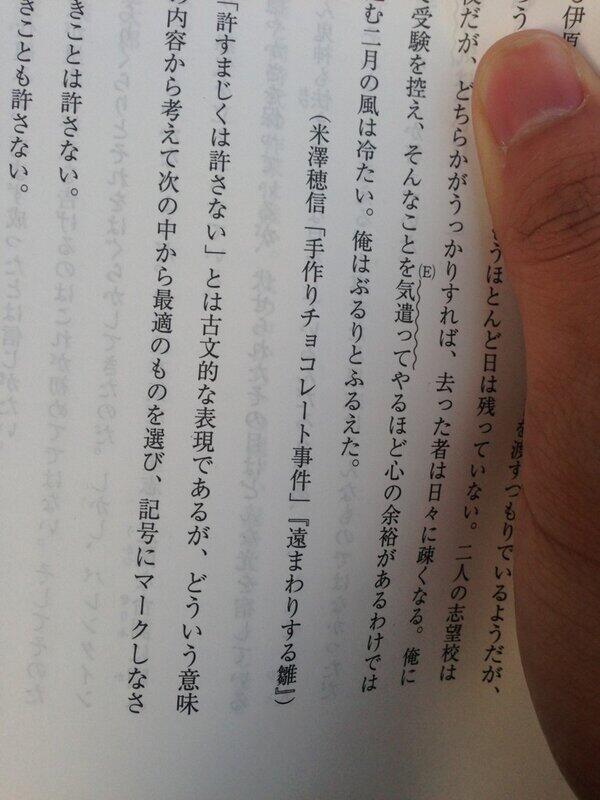 伊原
う を渡すつもりでいるようだが、
うほとんど日は残っていない。二人の志望校は
校だが、どちらかがうっかりすれば、去った者は日々に疎くなる。俺に
受験を控え、そんなことを気遣ってやるほど心の余裕があるわけでは
(E)
む二月の風は冷たい。俺はぶるりとふるえた。
(米澤穂信「手作りチョコレート事件」『遠まわりする雛』)
「許すまじくは許さない」とは古文的な表現であるが、どういう意味
の内容から考えて次の中から最適のものを選び、記号にマークしなさ
きことは許さない。
きことも許さない。